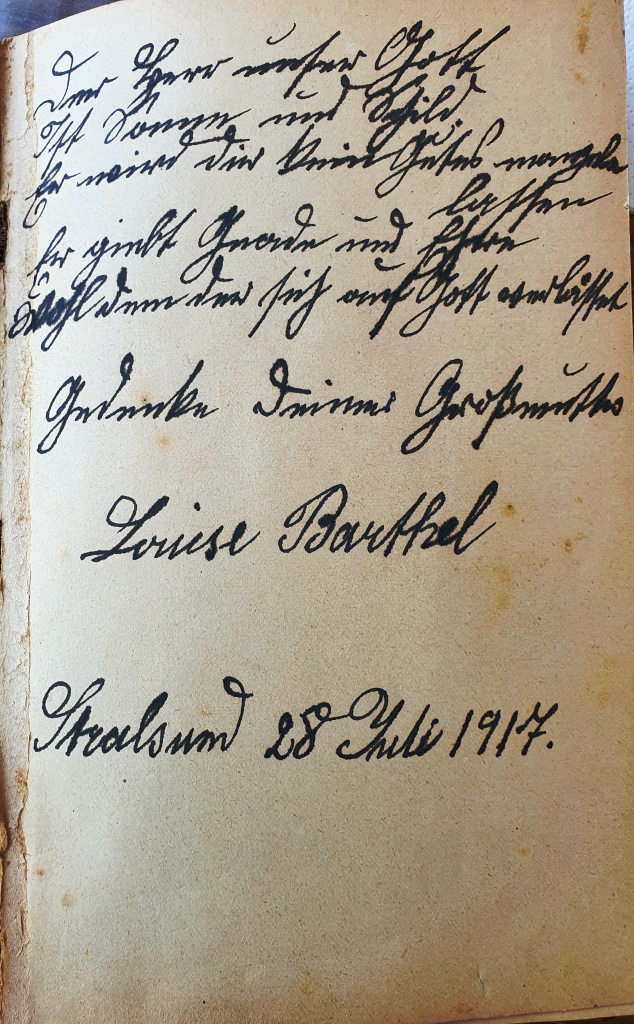 Der Herr unser Gott
Ist Sonne und Schild.
Er wird dir kein Gutes mangeln
lassen
Er giebt Gnade und Ehre
Wohl dem der sich auf Gott verlässet
Gedenke Deiner Großmutter
Louise Barthel
Stralsund 28 Juli 1917.